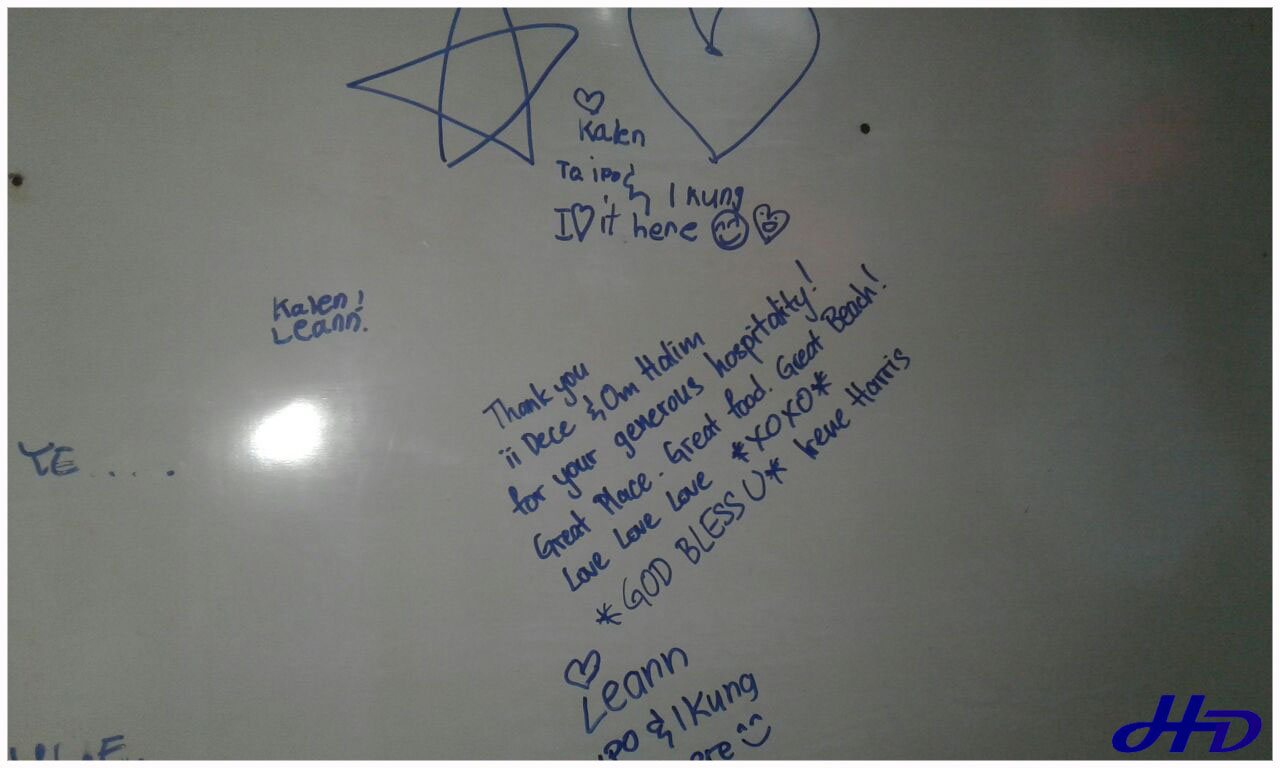 Kalen
Ta ipo &
I Kung
I ♡ it here
Kalen!
Leann!
Thank you
ii Dece & Om Halim
for your generous hospitality!
Great Place. Great food. Great Beach!
Love Love Love *XOXO*
*GOD BLESS U* Irene Harris
YE . . . .
Leann
ipo & I Kung
ere
HD